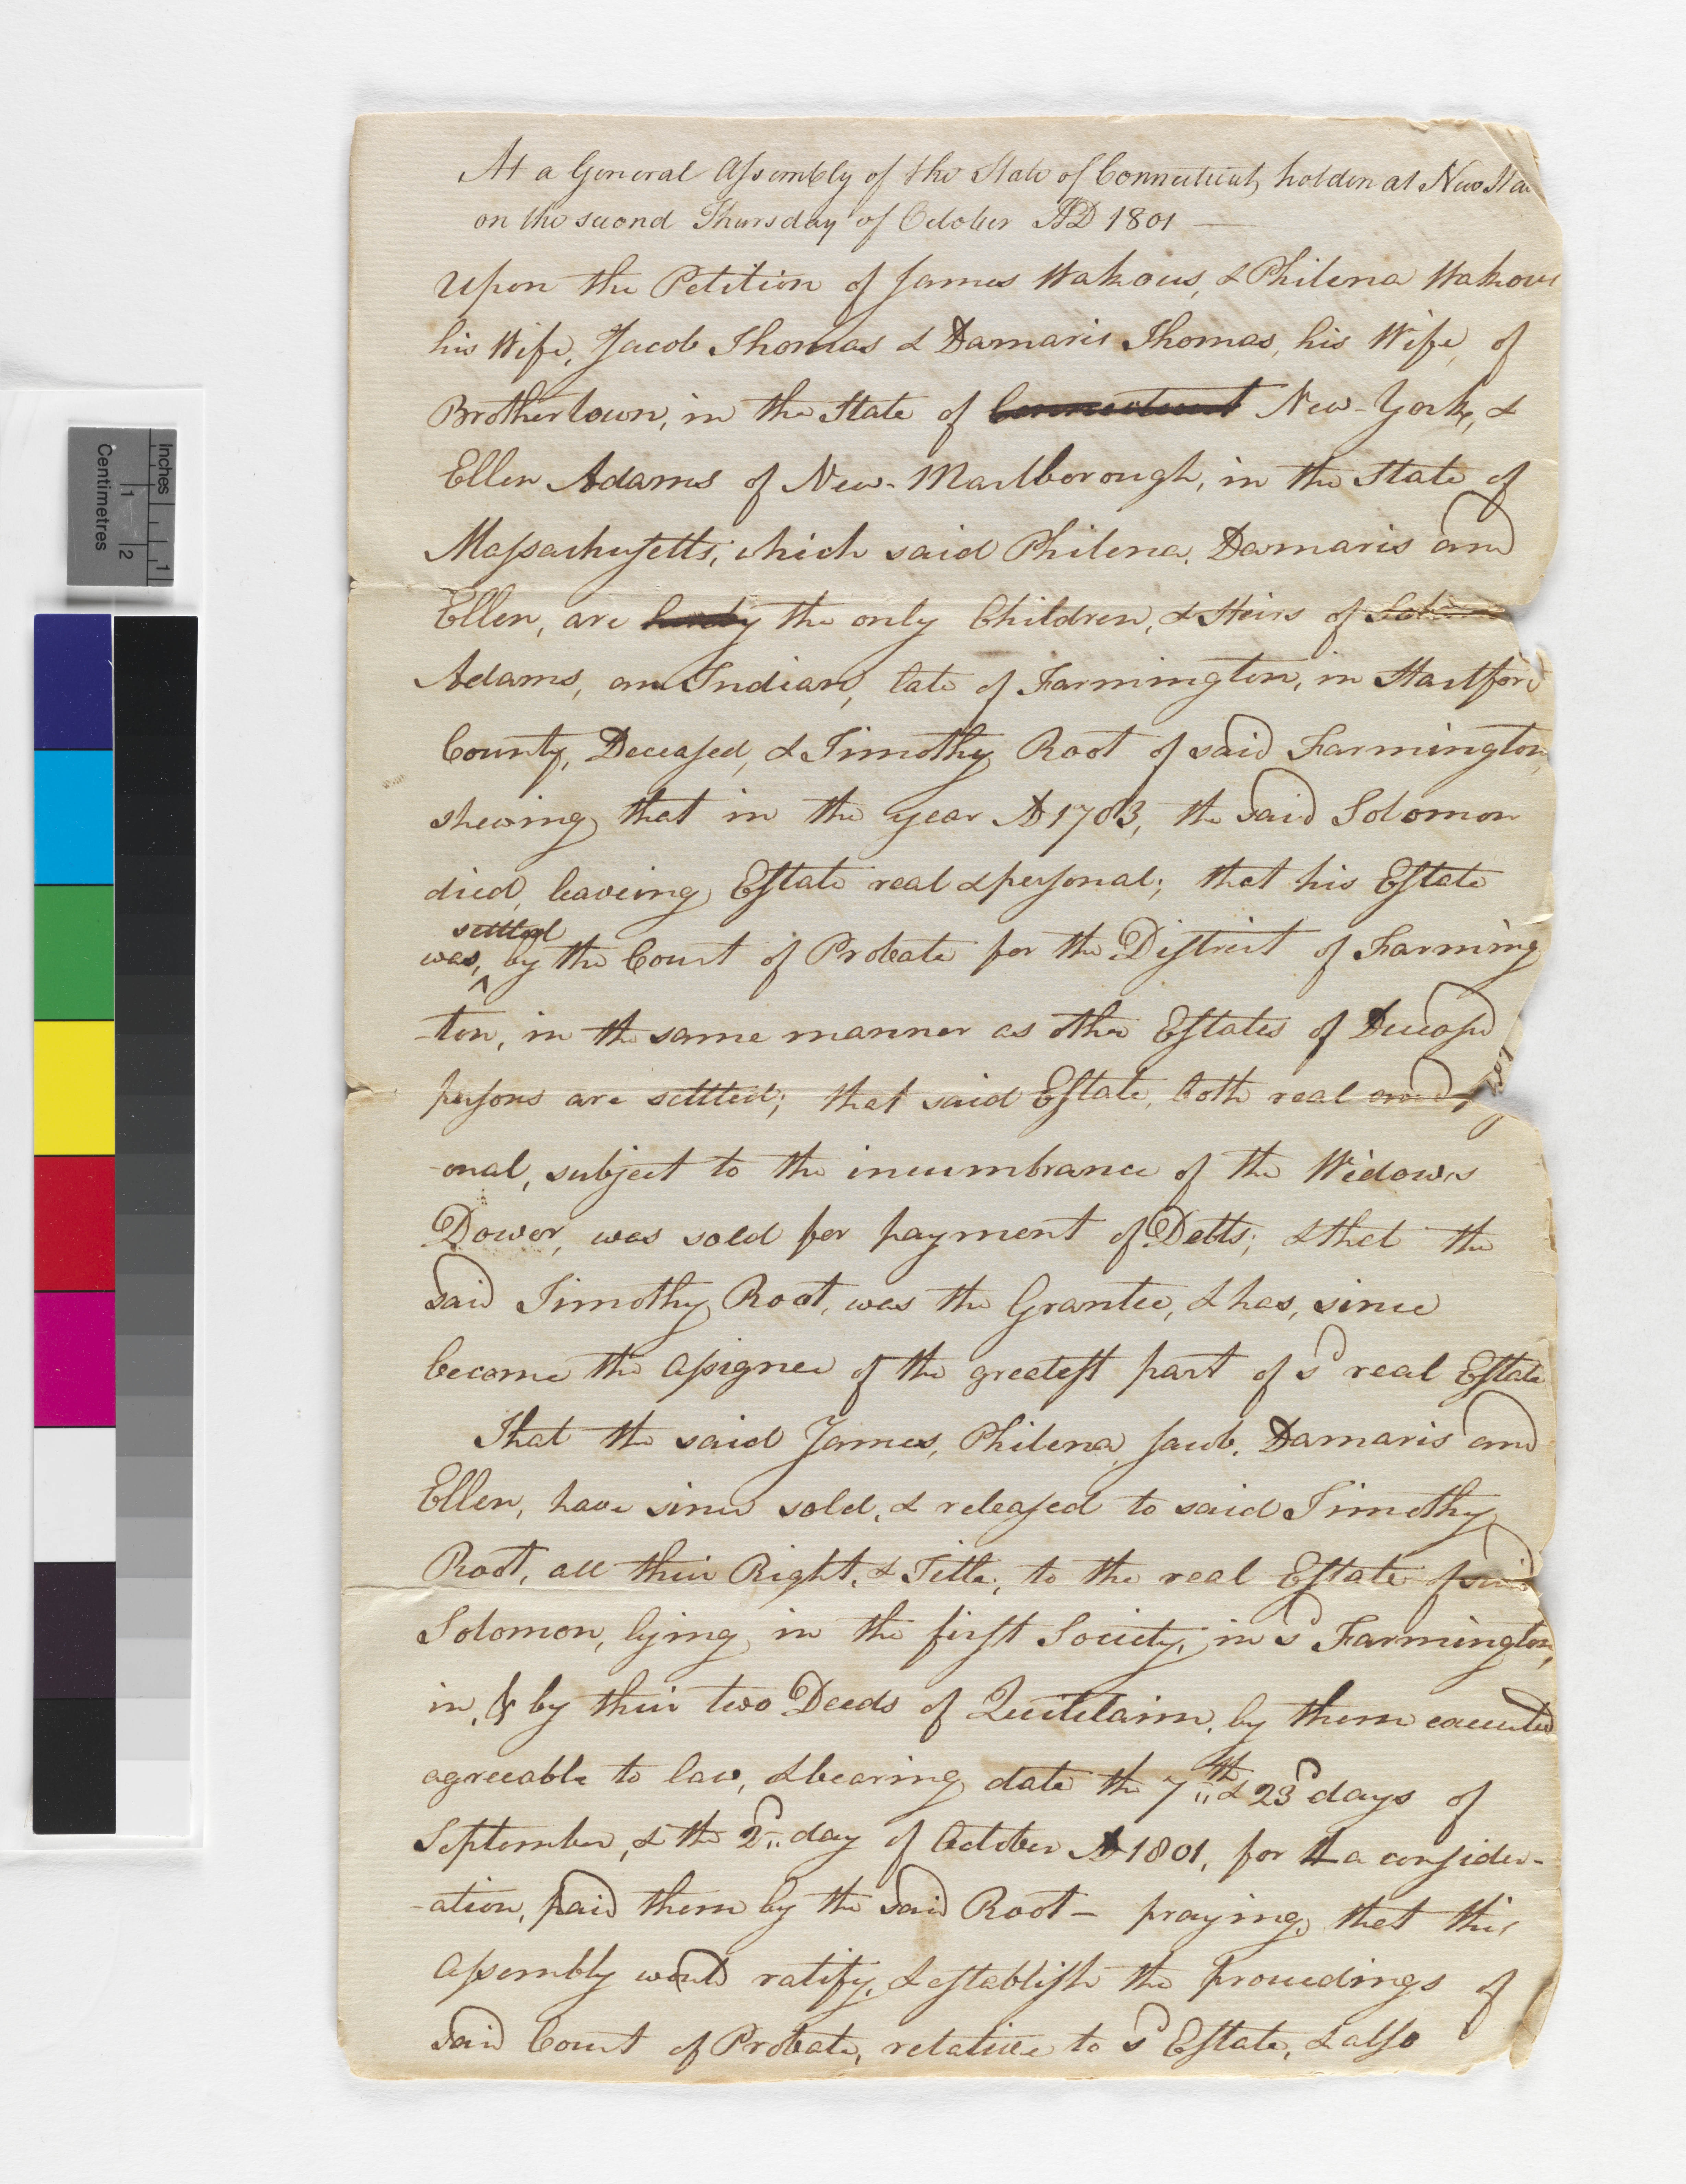 At a General Assembly of the State of Connecticut, holden at New Ha
on the second Thursday of October AD 1801 —
Upon the Petition of James Wakous, & Philena Wakous
his Wife, Jacob Thomas & Damaris Thomas, his Wife, of
Brothertown, in the State of Connecticut New-York, &
Ellen Adams of New-Marlborough, in the State of
Massachusetts; which said Philena, Damaris and
Ellen, are the only Children, & Heirs of Solomon
Adams, an Indian, late of Farmington, in Hartford
County, Deceased, & Timothy Root of said Farmington,
shewing that in the year AD 1783, the said Solomon
died, leaveing Estate real & personal; that his Estate
settled
was, by the Court of Probate for the District of Farming
-ton, in the same manner as other Estates of Deceasd
persons are settled; that said Estate, both real and pers
-onal, subject to the incumbrance of the Widows
Dower, was sold for payment of Debts; & that the
said Timothy Root, was the Grantee, & has, since
become the assignee of the greatest part of sd real Estate
That the said James, Philena, Jacob, Damaris and
Ellen, have since sold, & released to said Timothy
Root, all their Right, & Title, to the real Estate of said
Solomon, lying in the first Society, in sd Farmington,
in, & by their two Deeds of Quitclaim, by them executed
agreeable to law, & bearing date the 7th & 23d days of
September, & the 2d day of October AD 1801, for a consider-
-ation, paid them by the said Root — praying, that this
Assembly would ratify, & establish the proceedings of
said Court of Probate, relative to sd Estate, & also
Inches
Centimetres
1
2
1